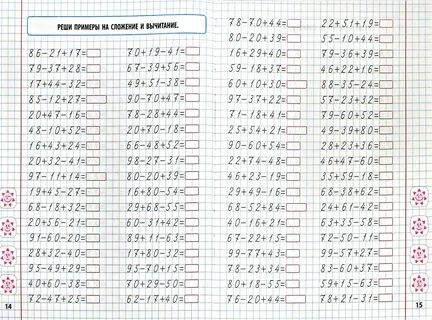 РЕШИ ПРИМЕРЫ НА СЛОЖЕНИЕ И ВЫЧИТАНИЕ.
86-21+17=
79-37+28=
17+44-32=
85-12+27=
20+47-16=
48-10+52=
16+43+24=
20+32-41=
97-11+14=
19+45-27=
68-18+32=
20+56-21=
91-60-20=
28+32-40=
95-49+29=
40+60-38=
72-47+25=
70+19-41=
67-39+56=
49+51-38=
90-70+47=
78-28+44=
20+70-18=
66-48+52=
98-27-31=
80-20+39=
16+80-54=
29+68-55=
60-31+42=
89+11-63=
17+80-32=
95-70+15=
29+50-30=
62-17+40=
14
78-70+44=
80-20+39=
16+29+40=
59-18+37=
60+10+30=
97-37+22=
71-19+32=
25+54+21=
90-60+54=
22+74-48=
46+23-19=
29+49-16=
68-52+84=
40+31-28=
67-22+15=
99-77+33=
78-23+34=
80-20+38=
76-20+44=
22+51+19=
55-10+44=
60-29+39=
46+22+16=
88-35-24=
57-23+32=
79-60+52=
49-39+80=
28+23+36=
46+47-60=
35+59-18=
68-38+62=
24+61-42=
63+35-58=
72-50-11=
99-57+27=
83-60+37=
59+15-63=
78+21-31=
15